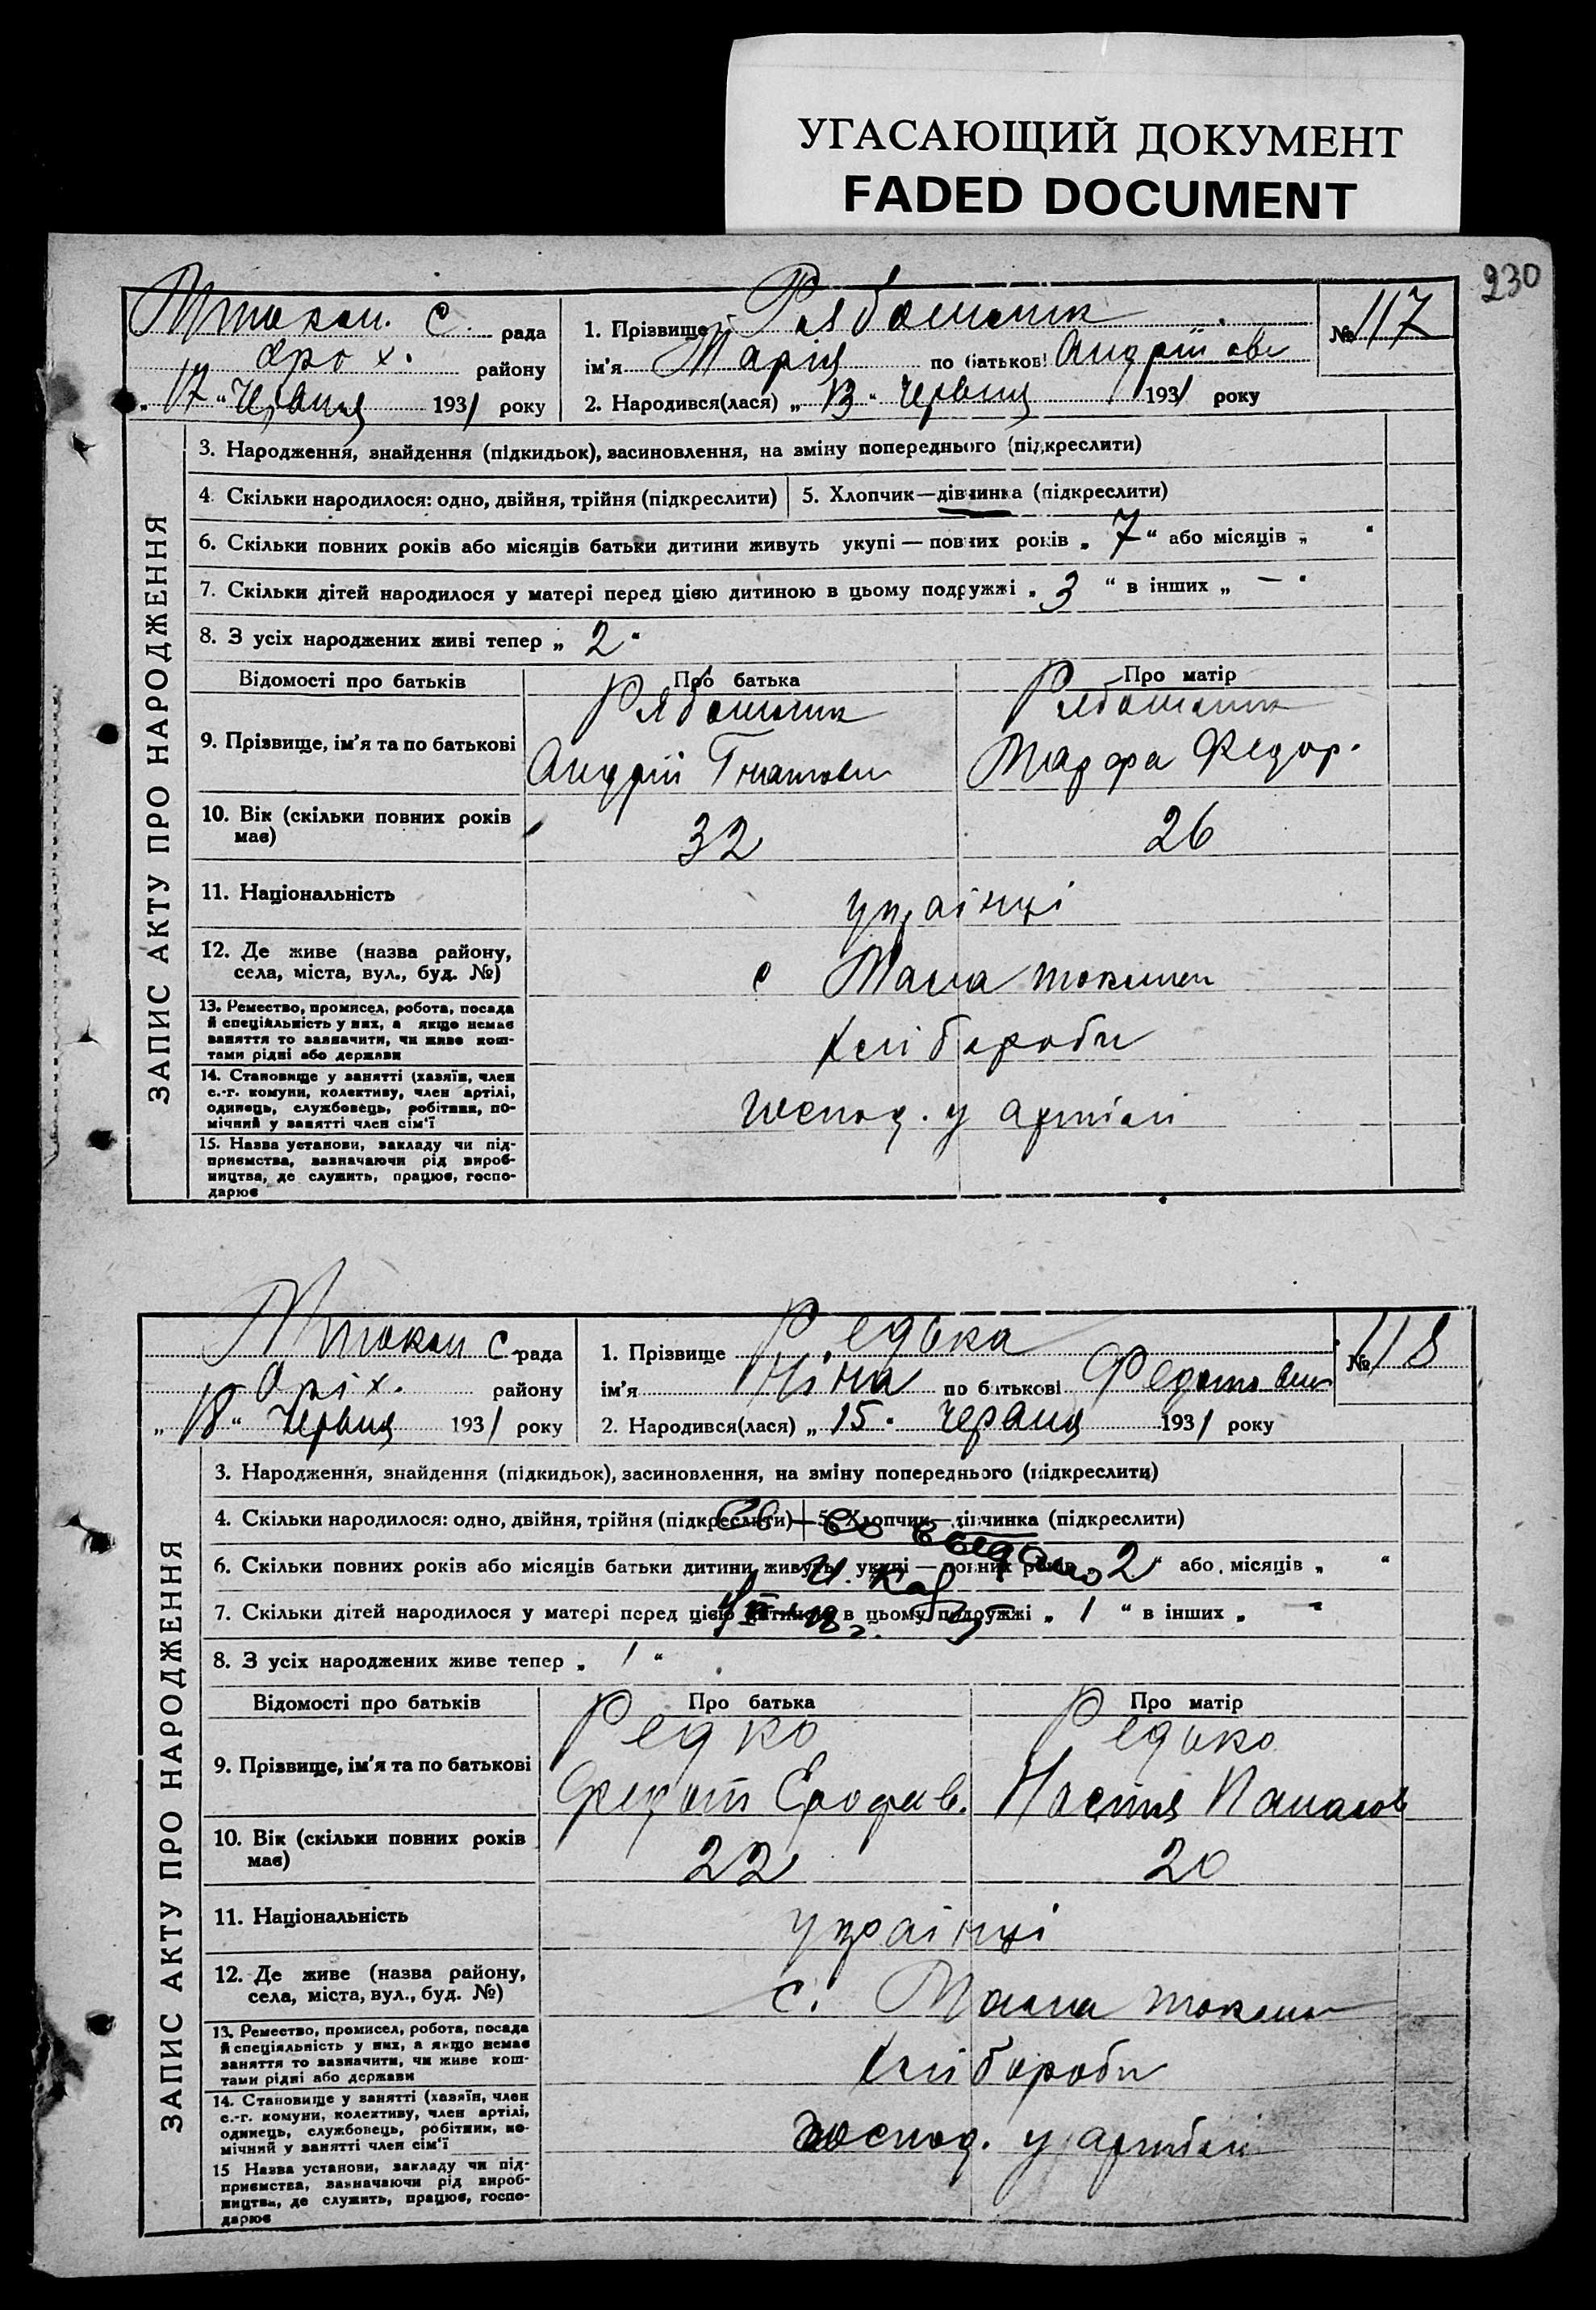 УГАСАЮЩИЙ ДОКУМЕНТ
FADED DOCUMENT
230
Мтокм. С. рада
оріх. району
„17“ Червня 1931 року
1. Прізвище Рябошапк
ім'я Марія по батькові Андріїовн
2. Народився(лася) „13“ Червня 1931 року
№ 117
ЗАПИС АКТУ ПРО НАРОДЖЕННЯ
3. Народження, знайдення (підкидьок), засиновлення, на зміну попереднього (підкреслити)
4. Скільки народилося: одно, двійня, трійня (підкреслити) 5. Хлопчик—дівчинка (підкреслити)
6. Скільки повних років або місяців батьки дитини живуть укупі — повних років „7“ або місяців „ “
7. Скільки дітей народилося у матері перед цією дитиною в цьому подружжі „3“ в інших „—“
8. З усіх народжених живі тепер „2“
Відомості про батьків Про батька Про матір
9. Прізвище, ім'я та по батькові
Рябошапк
Андрій Гнатови
Рябошапк
Марфа Федор.
10. Вік (скільки повних років має) 32 26
11. Національність українці
12. Де живе (назва району, села, міста, вул., буд. №) с Мала токмач
13. Ремество, промисел, робота, посада й спеціяльність у них, а якщо немає заняття то зазначити, чи живе коштами рідні або держави
хлібороби
14. Становище у занятті (хазяїн, член с.-г. комуни, колективу, член артілі, одинець, службовець, робітник, помічний у занятті член сім'ї
господ. у артілі
15. Назва установи, закладу чи підприємства, зазначаючи рід виробництва, де служить, працює, господарює
Мтокм С рада
Оріх. району
„18“ Червня 1931 року
1. Прізвище Редька
ім'я Ніна по батькові Федотовн
2. Народився(лася) „15“ червня 1931 року
№ 118
ЗАПИС АКТУ ПРО НАРОДЖЕННЯ
3. Народження, знайдення (підкидьок), засиновлення, на зміну попереднього (підкреслити)
4. Скільки народилося: одно, двійня, трійня (підкреслити) 5. Хлопчик—дівчинка (підкреслити)
Св-во выдано
6. Скільки повних років або місяців батьки дитини живуть укупі — повних років „2“ або місяців „ “
7. Скільки дітей народилося у матері перед цією дитиною в цьому подружжі „1“ в інших „—“
8. З усіх народжених живе тепер „1“
Відомості про батьків Про батька Про матір
9. Прізвище, ім'я та по батькові
Редко
Федот Єрофів.
Редько
Настя Панасов
10. Вік (скільки повних років має) 22 20
11. Національність українці
12. Де живе (назва району, села, міста, вул., буд. №) с. Мала токмач
13. Ремество, промисел, робота, посада й спеціяльність у них, а якщо немає заняття то зазначити, чи живе коштами рідні або держави
хлібороби
14. Становище у занятті (хазяїн, член с.-г. комуни, колективу, член артілі, одинець, службовець, робітник, помічний у занятті член сім'ї
господ. у артілі
15 Назва установи, закладу чи підприємства, зазначаючи рід виробництва, де служить, працює, господарює